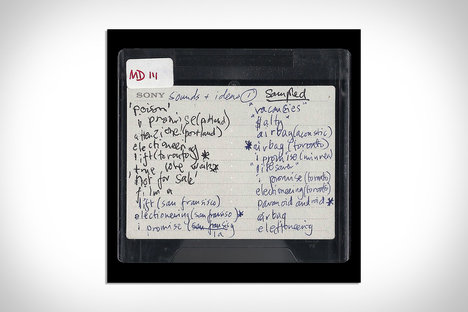 MD 111
SONY sounds + ideas ① sampled
'poison'
i promise(portland)
attenzione(portland)
electioneer
lift(toronto)*
true love waits*
not for sale
if i'm a
lift (san fransisco)
electioneering(sanfransisco)*
i promise la
"vacancies"
airbag(acoustic)
*airbag (toronto)
i promise
i promise (toronto)
electioneering(toronto)
paranoid android*
airbag
electioneering